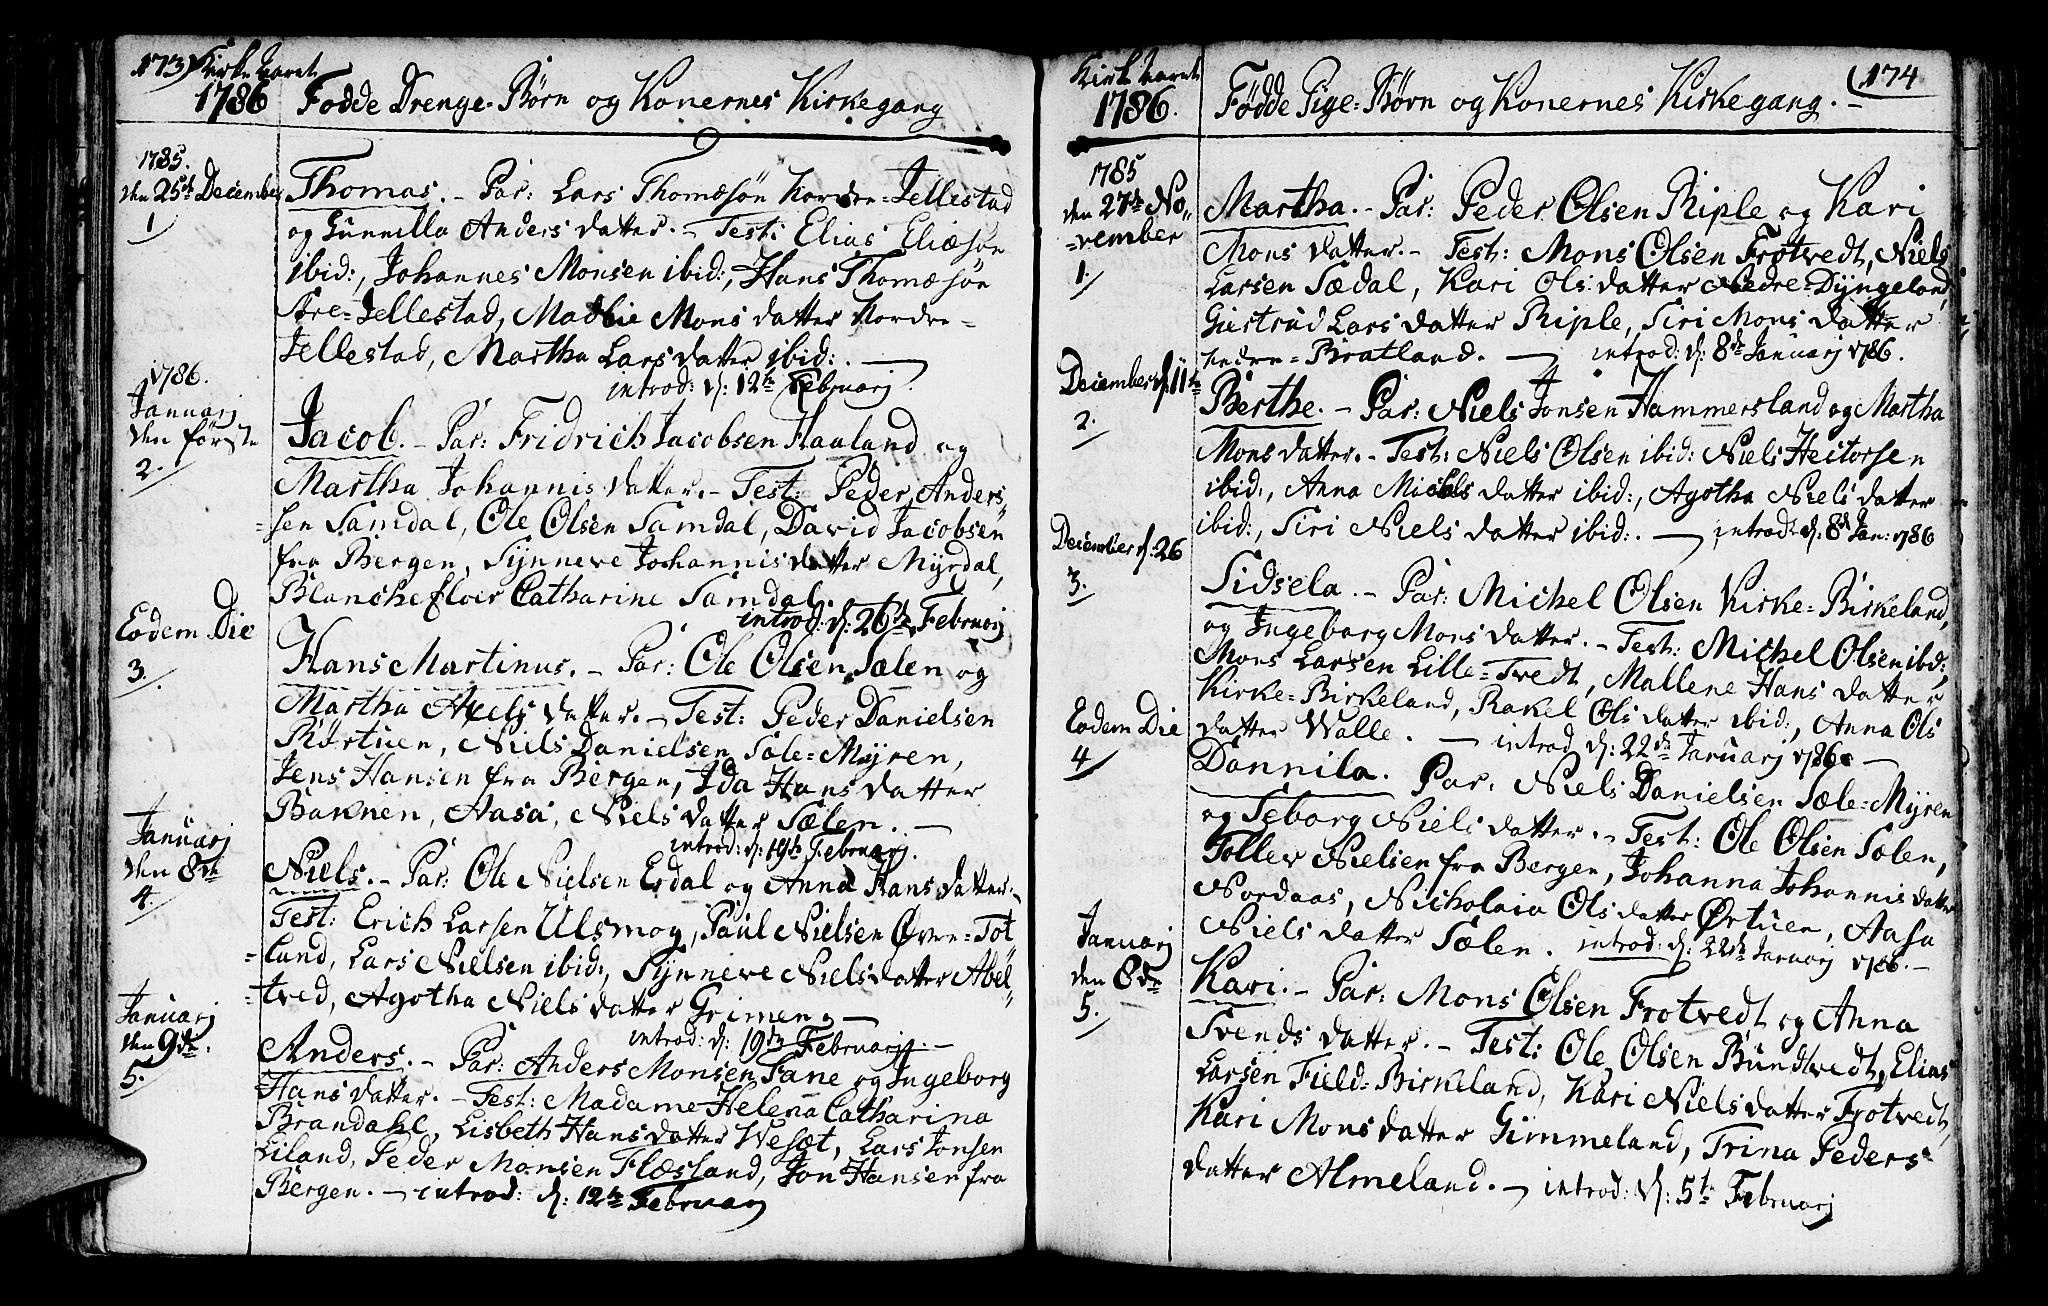 173) Kirke Aaret
1786 Fødde Drenge-Børn og Konernes Kirkegang
1785.
den 25de December
1
Thomas. - Par: Lars Thomæsøn Nordre-Jellestad
og Gunnilla Anders datter. - Test: Elias Eliæsøn
ibid:, Johannes Monsen ibid:, Hans Thomæsøn
Øvre-Jellestad, Madlie Mons datter Nordre-
Jellestad, Martha Lars datter ibid:. —
introd: d: 12te Februarj.
1786.
Januarj
den første
2.
Jacob. - Par: Fridrich Jacobsen Haaland og
Martha Johannis datter. - Test: Peder Anders-
=sen Samdal, Ole Olsen Samdal, David Jacobsen
fra Bergen, Synneve Johannis datter Myrdal,
Blanchefloer Catharine Samdal.
introd: d: 26de Februarj
Eodem Die
3.
Hans Martinus. - Par: Ole Olsen Sælen og
Martha Axels datter. - Test: Peder Danielsen
Ørtuen, Niels Danielsen Sæle=Myren,
Jens Hansen fra Bergen, Ida Hans datter
Bakken, Aasa, Niels datter Sælen. —
introd: d: 19de Februarj.
Januarj
den 8de
4.
Niels. - Par: Ole Nielsen Esdal og Anna Hans datter.-
Test: Erich Larsen Ulsmog, Paul Nielsen Øvre=Tot
=land, Lars Nielsen ibid:, Synneve Niels datter Abel-
=tved, Agotha Niels datter Grimen —
introd: d: 19de Februarj. -
Januarj
den 9de.
5.
Anders. - Par: Anders Monsen Fane og Ingeborg
Hans datter. - Test: Madame Helena Catharina
Brandahl, Lisbeth Hans datter Wesæt, Lars Jonsen
Liland, Peder Monsen Flæsland, Jon Hansen fra
Bergen. - introd: d: 12te Februarj
Kirk Aaret (174
1786. Fødde Pige-Børn og Konernes Kirkegang. -
1785
den 27de No-
=vember
1.
Martha. - Par: Peder Olsen Riple og Kari
Mons datter. - Test: Mons Olsen Frotvedt, Niels
Larsen Sædal, Kari Ols datter Nedre=Dyngeland,
Giertrud Lars datter Riple, Siri Mons datter
Indre=Bratland. — introd: d: 8de Januarj 1786.
December d: 11te
2.
Berthe. - Par: Niels Jonsen Hammersland og Martha
Mons datter. - Test: Niels Olsen ibid: Niels Heitorsen
ibid:, Anna Michels datter ibid:, Agotha Niels datter
ibid:, Siri Niels datter ibid:. — introd: d: 8de Jan: 1786
December d: 26
3.
Sidsela. - Par: Michel Olsen Kirke=Birkeland,
og Ingeborg Mons datter. - Test: Michel Olsen ibid:
Mons Larsen Lille=Tvedt, Mallene Hans datter
Kirke=Birkeland, Rakel Ols datter ibid:, Anna Ols
datter Walle. — introd d: 22de Januarj 1786 —
Eodem Die
4
Dannila. Par. Niels Danielsen Sæle=Myren
og Seborg Niels datter. - Test: Ole Olsen Sælen,
Toller Nielsen fra Bergen, Johanna Johannis datter
Nordaas, Nicholaia Ols datter Ørtuen, Aasa
Niels datter Sælen. introd: d: 22de Januarj 1786. -
Januarj
den 8de
5.
Kari. - Par: Mons Olsen Frotvedt og Anna
Svends datter. - Test: Ole Olsen Bundtvedt, Elias
Larsen Field=Birkeland, Kari Niels datter Frotvedt,
Kari Mons datter Gimmeland, Trina Peders-
datter Almeland. - introd: d: 5te Februarj